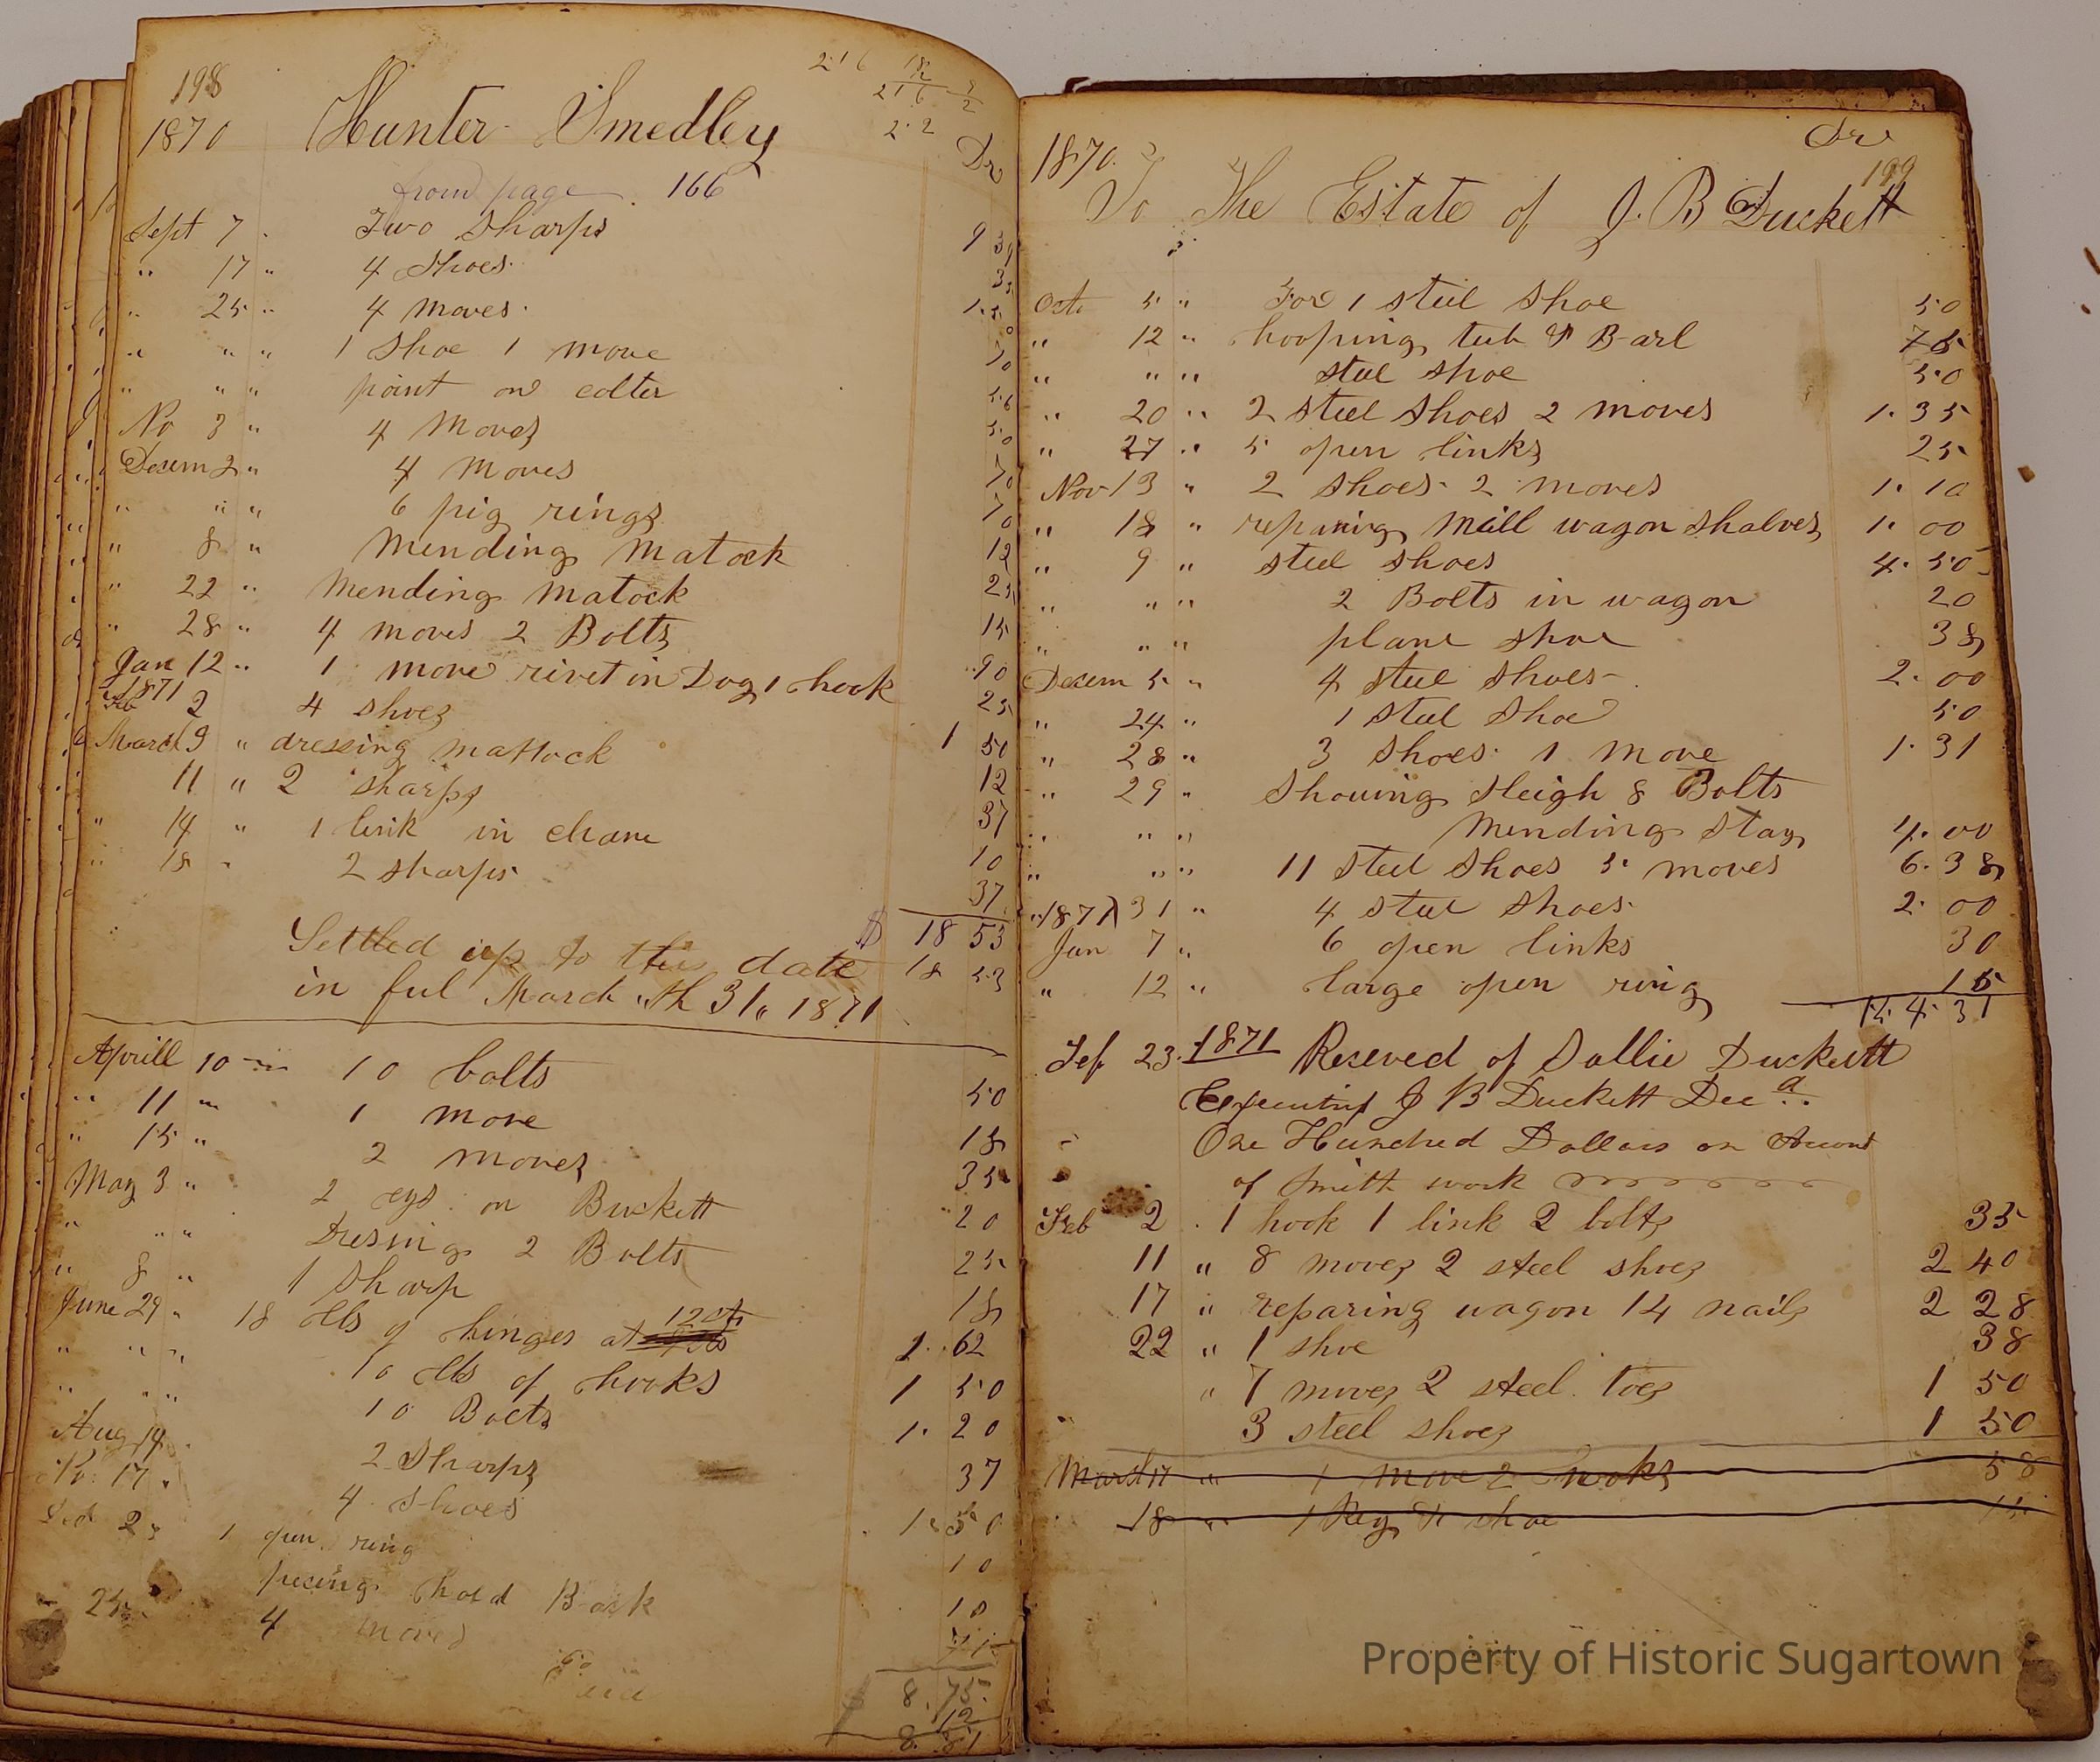 198
216
18
12
216
2.2
1870 Hunter Smedley Dr
from page 166
Sept 7 Two Sharps 9 39
" 17 " 4 Shoes
" 25 " 4 moves 1.50
" " " 1 Shoe 1 move 70
" " " point on colter
No 3 " 4 Moves 50
Desem 2 " 4 Moves 70
" " " 6 pig rings 70
" 8 " Mending Matock 12
" 22 " Mending Matock 25
" 28 " 4 moves 2 Bolts 15
Jan 12 " 1 move rivet in Dog 1 hook 90
1871
Feb 2 4 shoes 25
March 9 " dressing mattock 1 50
11 " 2 sharps 12
" 14 " 1 link in chane 37
" 18 " 2 sharps 10
37
$ 18 53
Settled up to this date 18 53
in ful March th 31 1871
Aprill 10 " 10 bolts 50
" 11 " 1 move 18
" 15 " 2 moves 35
May 3 " 2 eys on Buckett 20
" " " Dresing 2 Bolts 25
" 8 " 1 Sharp 18
June 29 " 18 lbs of hinges at 12 cts 1.62
" " " 10 lbs of hooks 1 50
" " " 10 Bolts 1.20
Aug 14 2 Sharps 37
No. 17 " 4 Shoes 1.50
1 open ring 10
hold Back 10
" 25 4 moves 75
Paid
8.75
12
8.87
Dr
1870 199
To The Estate of J. B Duckett
Oct 5 " For 1 steel Shoe 50
" 12 " hooping tub & B-arl 75
" " " steel shoe 50
" 20 " 2 steel Shoes 2 moves 1.35
" 27 " 5 open links 25
Nov 13 " 2 shoes 2 moves 1.10
" 18 " reparing mill wagon Shalves 1.00
" 9 " steel shoes 4.50
" " " 2 Bolts in wagon 20
" " " plane shoe 38
Desem 5 " 4 steel shoes 2.00
" 24 " 1 steel Shoe 50
" 28 " 3 Shoes 1 move 1.31
" 29 " Shouing Sleigh 8 Bolts
" " " Mending Stay 4.00
" " " 11 Steel Shoes 5 moves 6.38
" 1871 31 " 4 steel Shoes 2.00
Jan 7 " 6 open links 30
" 12 " large open ring 15
Feb 23 1871 Reseved of Sallie Duckett
J B Duckett Decd
One Hundred Dollars on Acount
of Smith work
Feb 2 1 hook 1 link 2 bolts 35
11 " 8 moves 2 steel shoes 2 40
17 " reparing wagon 14 nails 2 28
22 " 1 shoe 38
" 7 moves 2 steel toes 1 50
3 steel shoes 1 50
March 17 " 1 move 2 hooks 58
18 " 1 Key & shoe
Property of Historic Sugartown